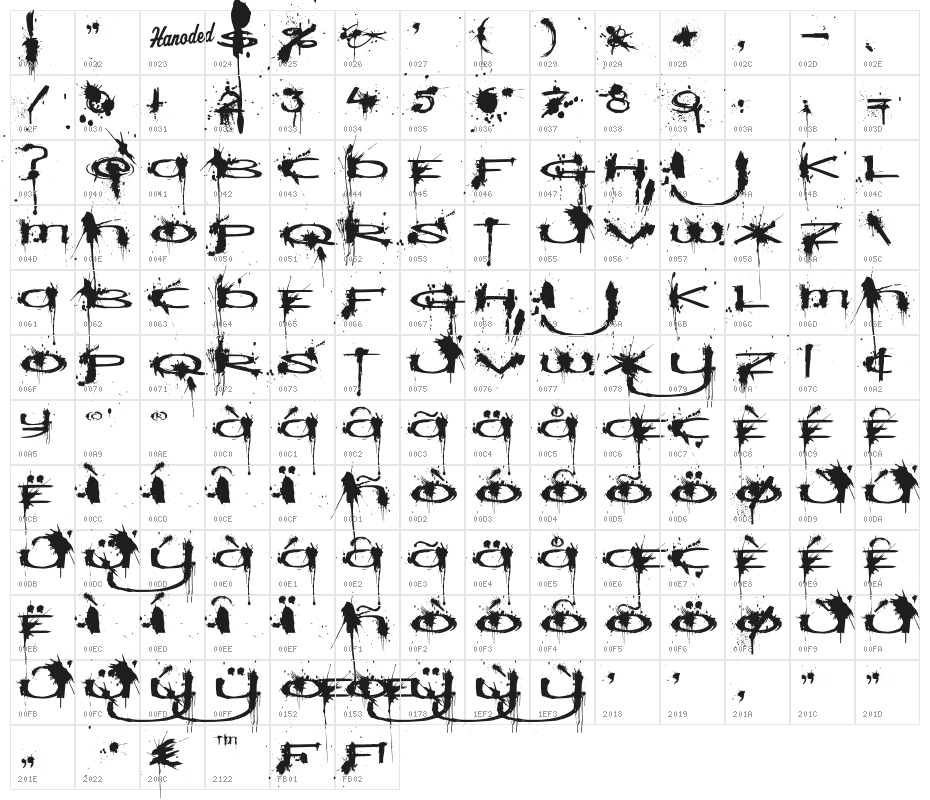 ! " Hanoded $ % & ' ( ) * + , - .
0021 0022 0023 0024 0025 0026 0027 0028 0029 002A 002B 002C 002D 002E
/ 0 1 2 3 4 5 6 7 8 9 : ; =
002F 0030 0031 0032 0033 0034 0035 0036 0037 0038 0039 003A 003B 003D
? @ A B C D E F G H I J K L
003F 0040 0041 0042 0043 0044 0045 0046 0047 0048 0049 004A 004B 004C
M N O P Q R S T U V W X Z \
004D 004E 004F 0050 0051 0052 0053 0054 0055 0056 0057 0058 005A 005C
a b c d e f g h i j k l m n
0061 0062 0063 0064 0065 0066 0067 0068 0069 006A 006B 006C 006D 006E
o p q r s t u v w x y z | ¢
006F 0070 0071 0072 0073 0074 0075 0076 0077 0078 0079 007A 007C 00A2
¥ © ® À Á Â Ã Ä Å Æ Ç È É Ê
00A5 00A9 00AE 00C0 00C1 00C2 00C3 00C4 00C5 00C6 00C7 00C8 00C9 00CA
Ë Ì Í Î Ï Ñ Ò Ó Ô Õ Ö Ø Ù Ú
00CB 00CC 00CD 00CE 00CF 00D1 00D2 00D3 00D4 00D5 00D6 00D8 00D9 00DA
Û Ü Ý à á â ã ä å æ ç è é ê
00DB 00DC 00DD 00E0 00E1 00E2 00E3 00E4 00E5 00E6 00E7 00E8 00E9 00EA
ë ì í î ï ñ ò ó ô õ ö ø ù ú
00EB 00EC 00ED 00EE 00EF 00F1 00F2 00F3 00F4 00F5 00F6 00F8 00F9 00FA
û ü ý ÿ Œ œ Ÿ Ỳ ỳ ‘ ’ ‚ “ ”
00FB 00FC 00FD 00FF 0152 0153 0178 1EF2 1EF3 2018 2019 201A 201C 201D
„ • € ™ fi fl
201E 2022 20AC 2122 FB01 FB02